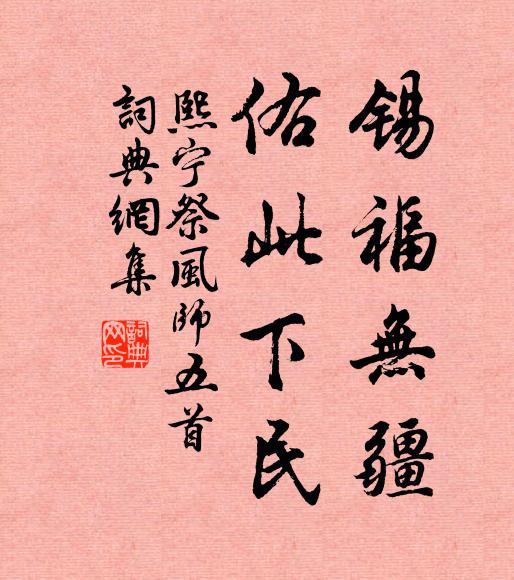 锡福無疆
佑此下民
熙宁祭風師五首
詞典網集
詞典网印